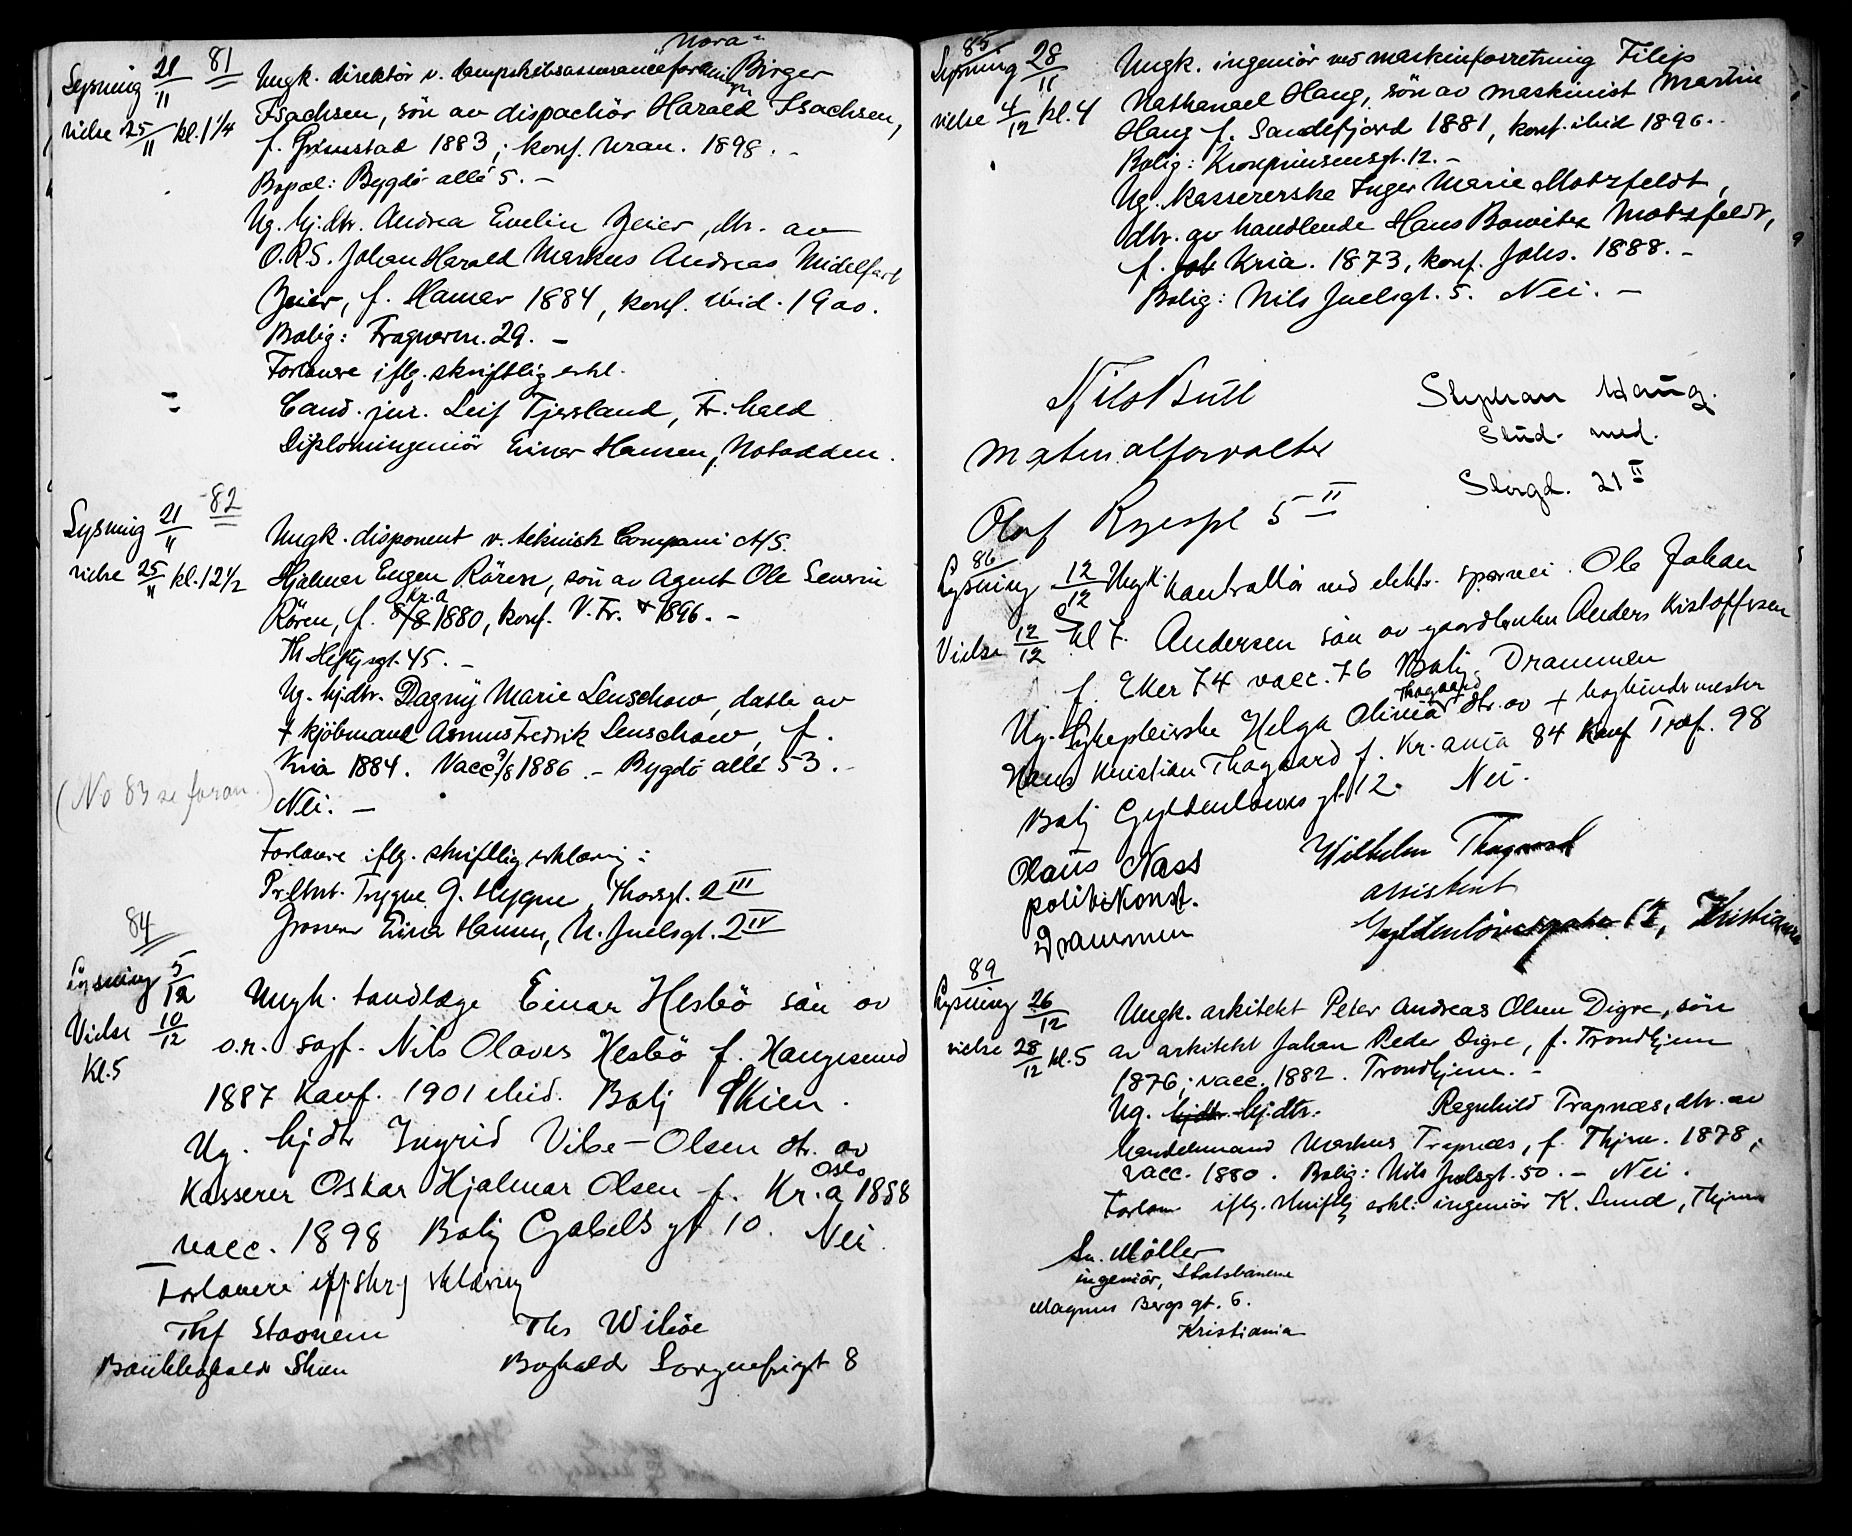 81
Lysning 21/11
vielse 25/11 kl. 1 1/4
"Nora"
Ungk. direktör v. dampskibsassuranceforenin- Birger
gen
Isachsen, sön av dispachör Harald Isachsen,
f. Grimstad 1883; konf. Uran. 1898. -
Bopæl: Bygdö allé 5. -
Ug. hj.dtr. Andrea Evelin Zeier, dtr. av
O.R.S. Johan Harald Markus Andreas Midelfart
Zeier, f. Hamar 1884, konf. ibid. 1900.
Bolig: Frognerv. 29. -
Forlovere iflg. skriftlig erkl.
Cand. jur. Leif Tjersland, Fr.hald
Diplomingeniör Einar Hansen, Notodden.
82
Lysning 21/11
vielse 25/11 kl. 12 1/2
Ungk. disponent v. teknisk Compani A/S.
Hjalmar Eugen Rören, sön av Agent Ole Severin
Kr.a
Rören, f. 8/8 1880, konf. V. Fr. 1896. -
Th Heftysgt. 45. -
Ug. hjdtr. Dagny Marie Lenschow, datter av
+ kjöbmand Asmus Fredrik Lenschow, f.
Kria 1884. Vacc. 9/8 1886. - Bygdö allé 53. -
(No 83 se foran.)
Nei. -
Forlovere iflg. skriftlig erklæring:
Pr.ltnt. Trygve G. Hygen, Thorsgt. 2 III
Grosserer Einar Hansen, N. Juelsgt. 2 IV
84
Lysning 5/12
Vielse 10/12
Kl. 5
Ungk. tandlæge Einar Hesbö sön av
o.r. sagf. Nils Olaves Hesbö f. Haugesund
1887 Konf. 1901 ibid. Bolig Skien.
Ug. hjdtr Ingrid Vibe-Olsen dtr. av
Oslo
Kasserer Oskar Hjalmar Olsen f. Kr.a 1888
vacc. 1898 Bolig Gabels gt 10. Nei.
Forlovere iflg. skr. erklæring
Thf Stavnem
Bankbokholder Skien
Ths Wiböe
Bokholder Sorgenfrigt 8
85.
Lysning 28/11
vielse 4/12 kl. 4
Ungk. ingeniör ved maskinforretning Filip
Nathanael Haug, sön av maskinist Martin
Haug f. Sandefjord 1881, konf. ibid 1896. -
Bolig: Kronprinsensgt. 12. -
Ug. kassererske Inger Marie Motzfeldt,
dtr. av handlende Hans Bowitz Motzfeldt,
f. Kria. 1873, konf. Johs. 1888. -
Bolig: Nils Juelsgt. 5. Nei. -
Nils Bull
materialforvalter
Olaf Ryespl 5 II
Stephan Haug.
Stud. med.
Storgd. 21 II
86
Lysning 12/12
Vielse 12/12 kl 7.
Ungk. Kontrollör ved elektr. sporvei. Ole Johan
Andersen sön av gaardbruker Anders Kistoffersen
f. Eker 74 vacc. 76 Bolig. Drammen
Thogaard
Ug. Sykepleierske Helga Olivia dtr. av + bogbindermester
Hans Kristian Thogaard f. Kr.ania 84 Konf Tref. 98
Bolig Gyldenlöves gt. 12. Nei.
Olaus Nass
politikonst.
Drammen
Wilhelm Thogaard
assistent
Gyldenlövesgate 12, Kristiania
89
Lysning 26/12
vielse 28/12 kl. 5
Ungk. arkitekt Peter Andreas Olsen Digre, sön
av arkitekt Johan Peder Digre, f. Trondhjem
1876; vacc. 1882. Trondhjem. -
Ug. hjdtr. hjdtr. Regnhild Trapnæs, dtr. av
handelsmand Markus Trapnæs, f. Thjem. 1878;
vacc. 1880. Bolig: Nils Juelsgt. 50. - Nei.
Forlov. iflg. skriftlig erkl: ingeniör K. Lund, Thjem
Sv. Möller
ingeniör, Statsbanerne
Magnus Bergs gt. 6.
Kristiania